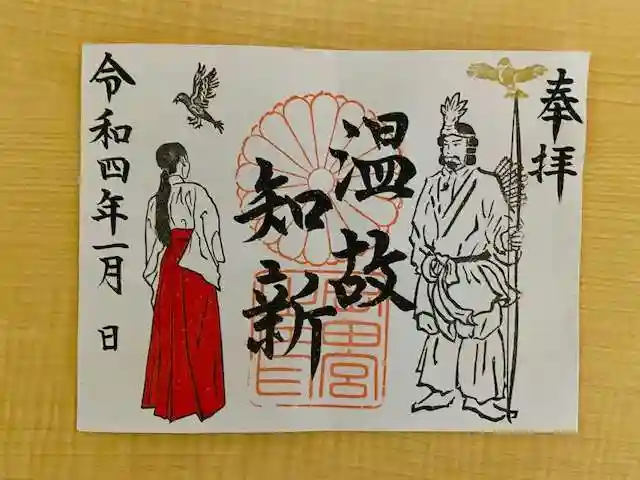 奉拝
温故
知新
令和四年一月 日